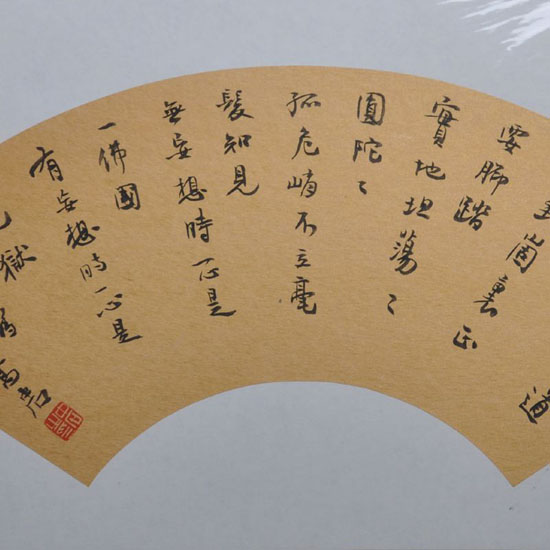 道
箇裏正
要脚踏
實地坦蕩〻
圓陀〻
孤危峭不立毫
髮知見
無妄想時一心是
一佛國
有妄想時一心是
獄
居